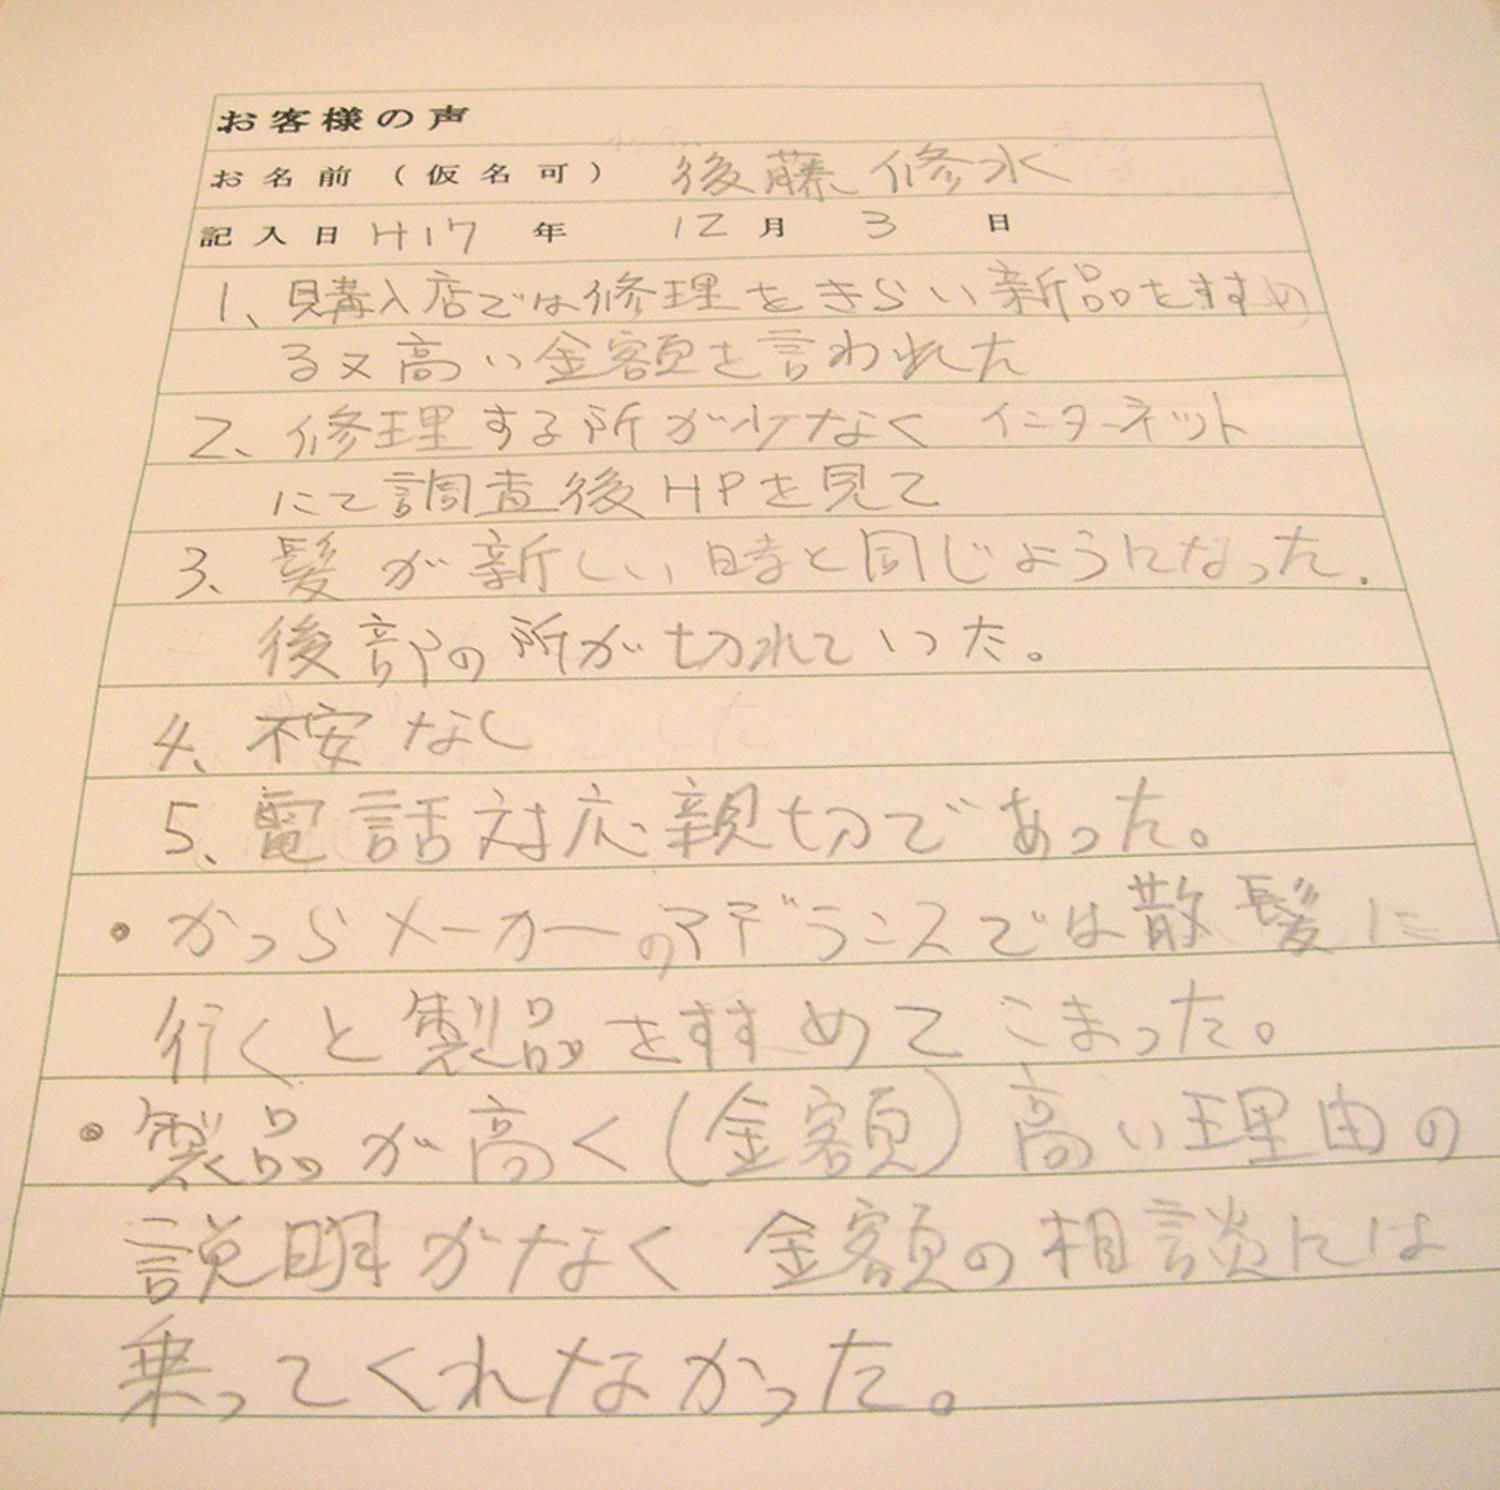 お客様の声
お名前（仮名可） 後藤 修水
記入日 H17 年 12 月 3 日
1、購入店では修理をきらい新品をすすめ
る又高い金額を言われた
2、修理する所が少なく インターネット
にて調査後HPを見て
3、髪が新しい時と同じようになった.
後部の所が切れていった。
4、不安なし
5、電話対応親切であった。
・かつらメーカーのアデランスでは散髪に
行くと製品をすすめてこまった。
・製品が高く(金額)高い理由の
説明がなく 金額の相談には
乗ってくれなかった。